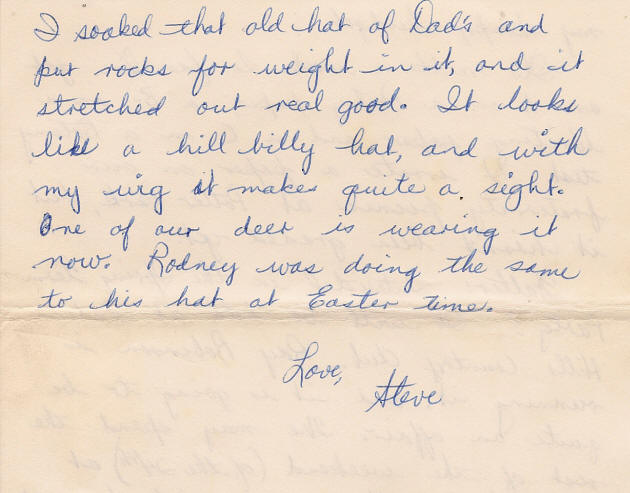 I soaked that old hat of Dad's and
put rocks for weight in it, and it
stretched out real good. It looks
like a hill billy hat, and with
my wig it makes quite a sight.
One of our deer is wearing it
now. Rodney was doing the same
to his hat at Easter time.
Love,
Steve